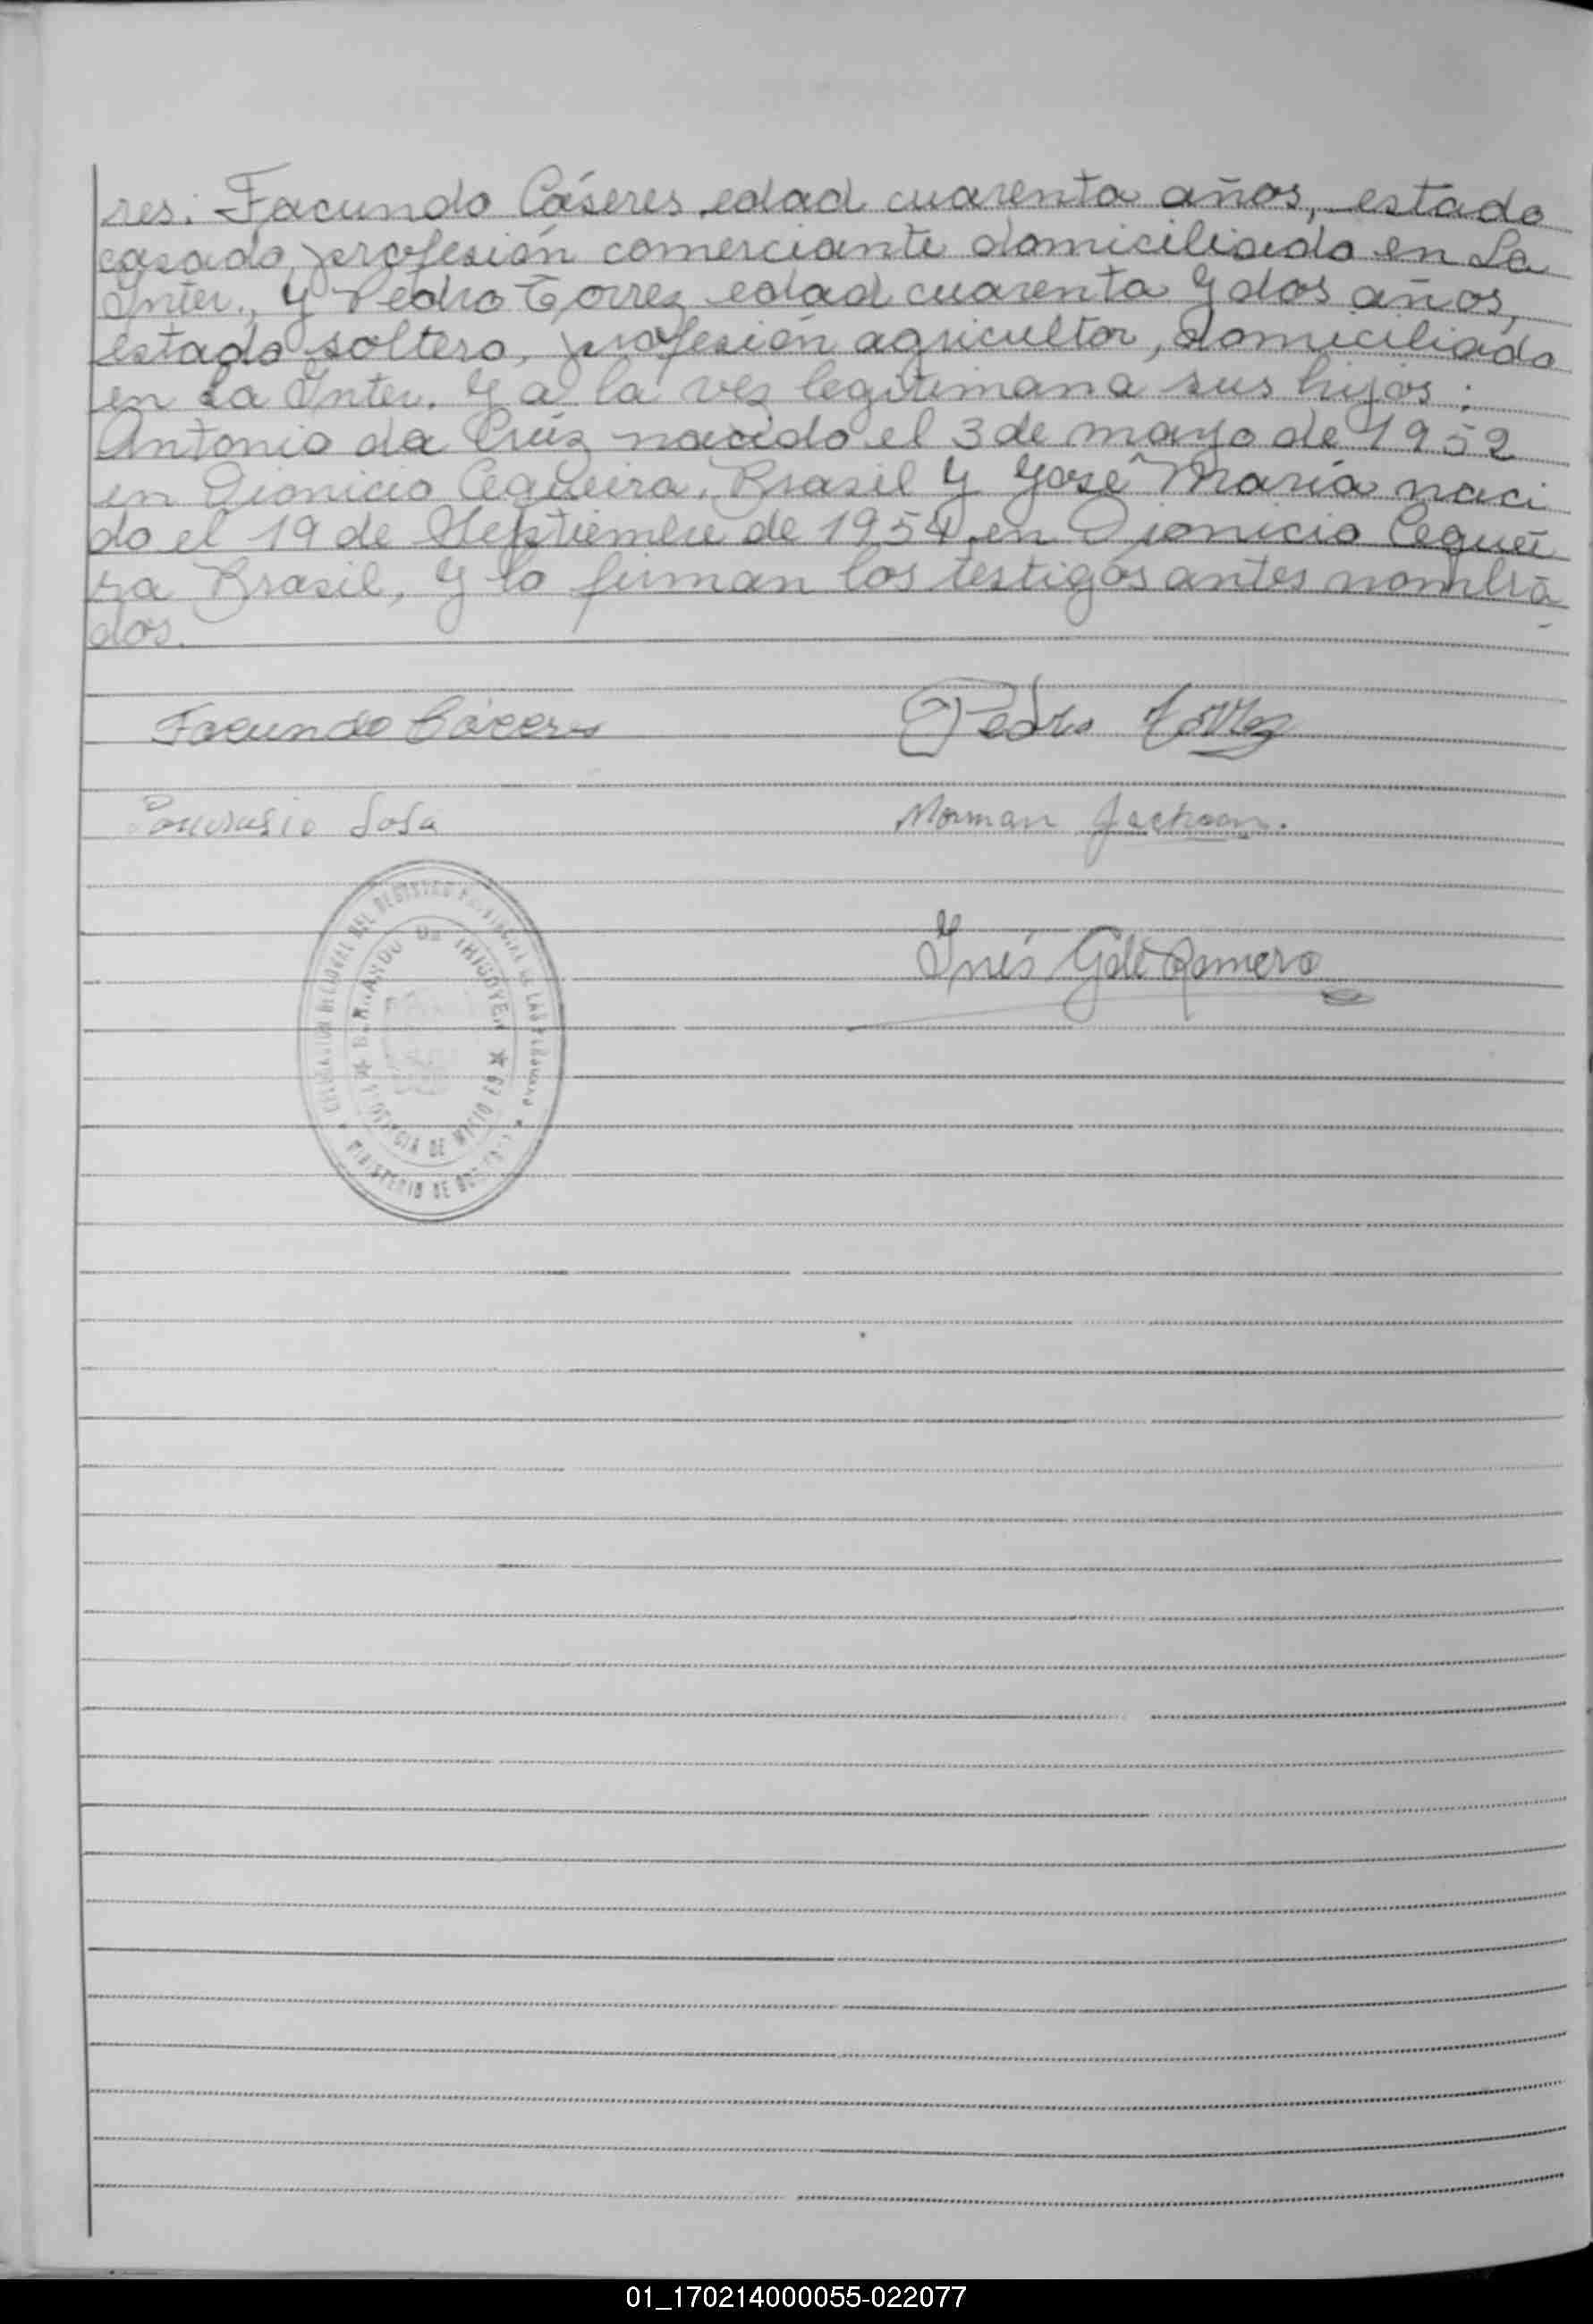 res: Facundo Cáseres edad cuarenta años, estado
casado, profesión comerciante domiciliado en La
Inter., y Pedro Torrez edad cuarenta y dos años,
estado soltero, profesión agricultor, domiciliado
en La Inter. Y a la vez legitimana sus hijos:
Antonio da Crúz nacido el 3 de mayo de 1952
en Dionicio Cequeira, Brasil y José María naci
do el 19 de Septiembre de 1954 en Dionicio Cequei
ra Brasil, y lo firman los testigos antes nombra
dos.
Facundo Cáceres
Pedro Torrez
Sosa
Norman Jackson.
Inés G. de Romero
DEL REGISTRO PROVINCIAL DE LAS PERSONAS
BERNARDO DE IRIGOYEN
PROVINCIA DE MISIONES
MINISTERIO DE GOBIERNO
01_170214000055-022077